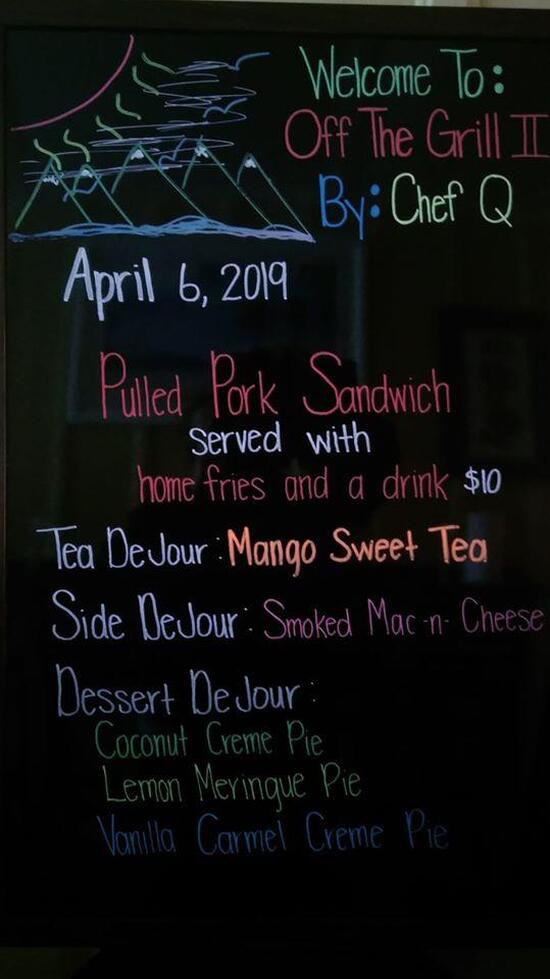 Welcome To:
Off The Grill II
By: Chef Q
April 6, 2019
Pulled Pork Sandwich
served with
home fries and a drink $10
Tea DeJour: Mango Sweet Tea
Side DeJour: Smoked Mac-n-Cheese
Dessert DeJour:
Coconut Creme Pie
Lemon Meringue Pie
Vanilla Carmel Creme Pie